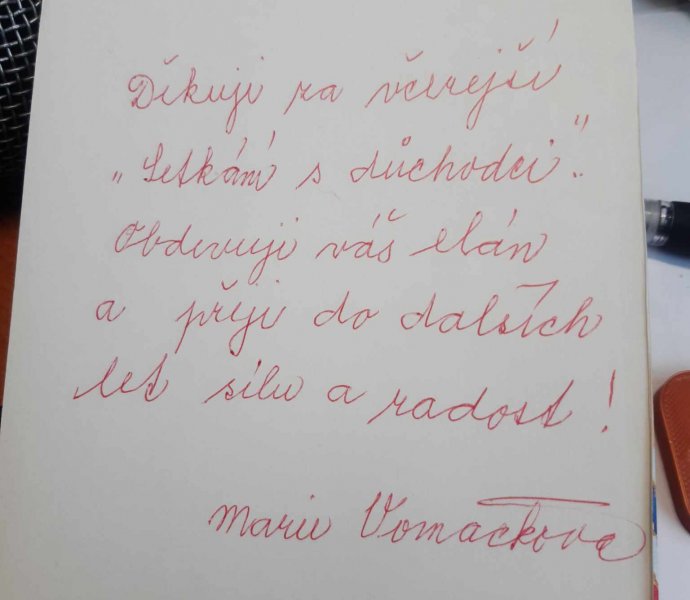 Děkuji za včerejší
„Setkání s důchodci“.
Obdivuji váš elán
a přeji do dalších
let sílu a radost!
Marie Vomáčková